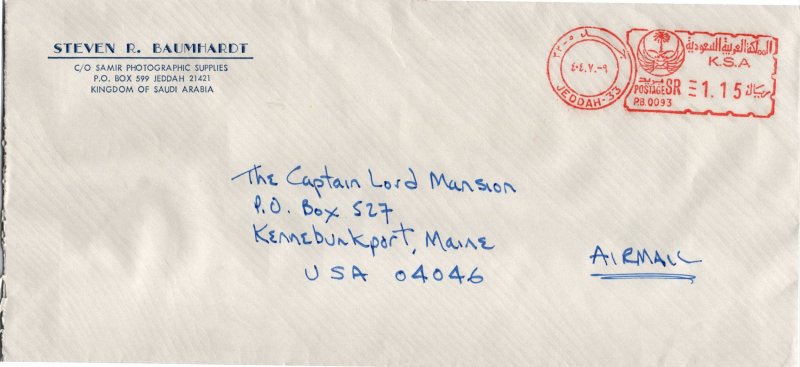 STEVEN R. BAUMHARDT
C/O SAMIR PHOTOGRAPHIC SUPPLIES
P.O. BOX 599 JEDDAH 21421
KINGDOM OF SAUDI ARABIA
JEDDAH-33
المملكة العربية السعودية
K.S.A
بريد
POSTAGE SR 1.15 ريال
P.B.0093
The Captain Lord Mansion
P.O. Box 527
Kennebunkport, Maine
USA 04046
AIRMAIL